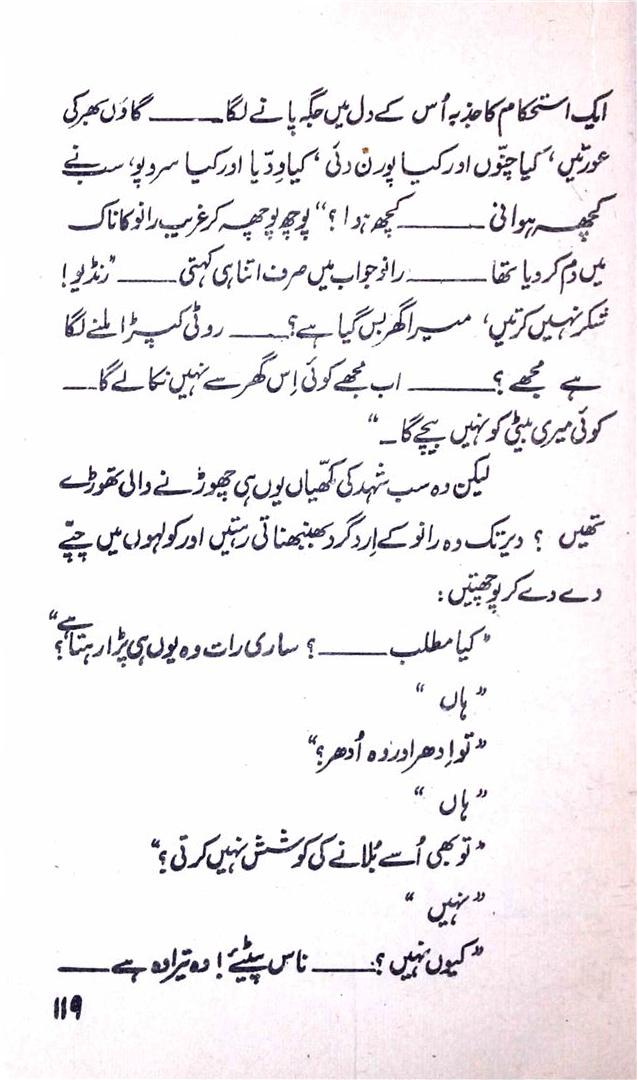 ایک استحکام کا جذبہ اُس کے دل میں جگہ پانے لگا ــــــ گاؤں بھر کی
عورتیں، کیا چنّوں اور کیا پورن دئی، کیا ودّیا اور کیا سروپو، سب نے
کچھ ہوانی ــــــ کچھ ہوا؟“ پوچھ پوچھ کر غریب رانو کا ناک
میں دم کر دیا تھا ــــــ رانو جواب میں صرف اتنا ہی کہتی ــــــ ”رنڈیو!
شکر نہیں کرتیں، میرا گھر بس گیا ہے؟ ــــــ روٹی کپڑا ملنے لگا
ہے مجھے؟ ــــــ اب مجھے کوئی اِس گھر سے نہیں نکالے گا ــــ
کوئی میری بیٹی کو نہیں بیچے گا ــ“
لیکن وہ سب شہد کی مکھّیاں یوں ہی چھوڑنے والی تھوڑے
تھیں؟ دیر تک وہ رانو کے اِرد گرد بھنبھناتی رہتیں اور کولہوں میں چپّے
دے دے کر پوچھتیں:
”کیا مطلب ــــــ؟ ساری رات وہ یوں ہی پڑا رہتا ہے؟“
”ہاں“
”تو اِدھر اور وہ اُدھر؟“
”ہاں“
”تو بھی اُسے بُلانے کی کوشش نہیں کرتی؟“
”نہیں“
”کیوں نہیں؟ ــــــ ناس پیٹیے! وہ تیرا وہ ہے ــــــ
۱۱۹